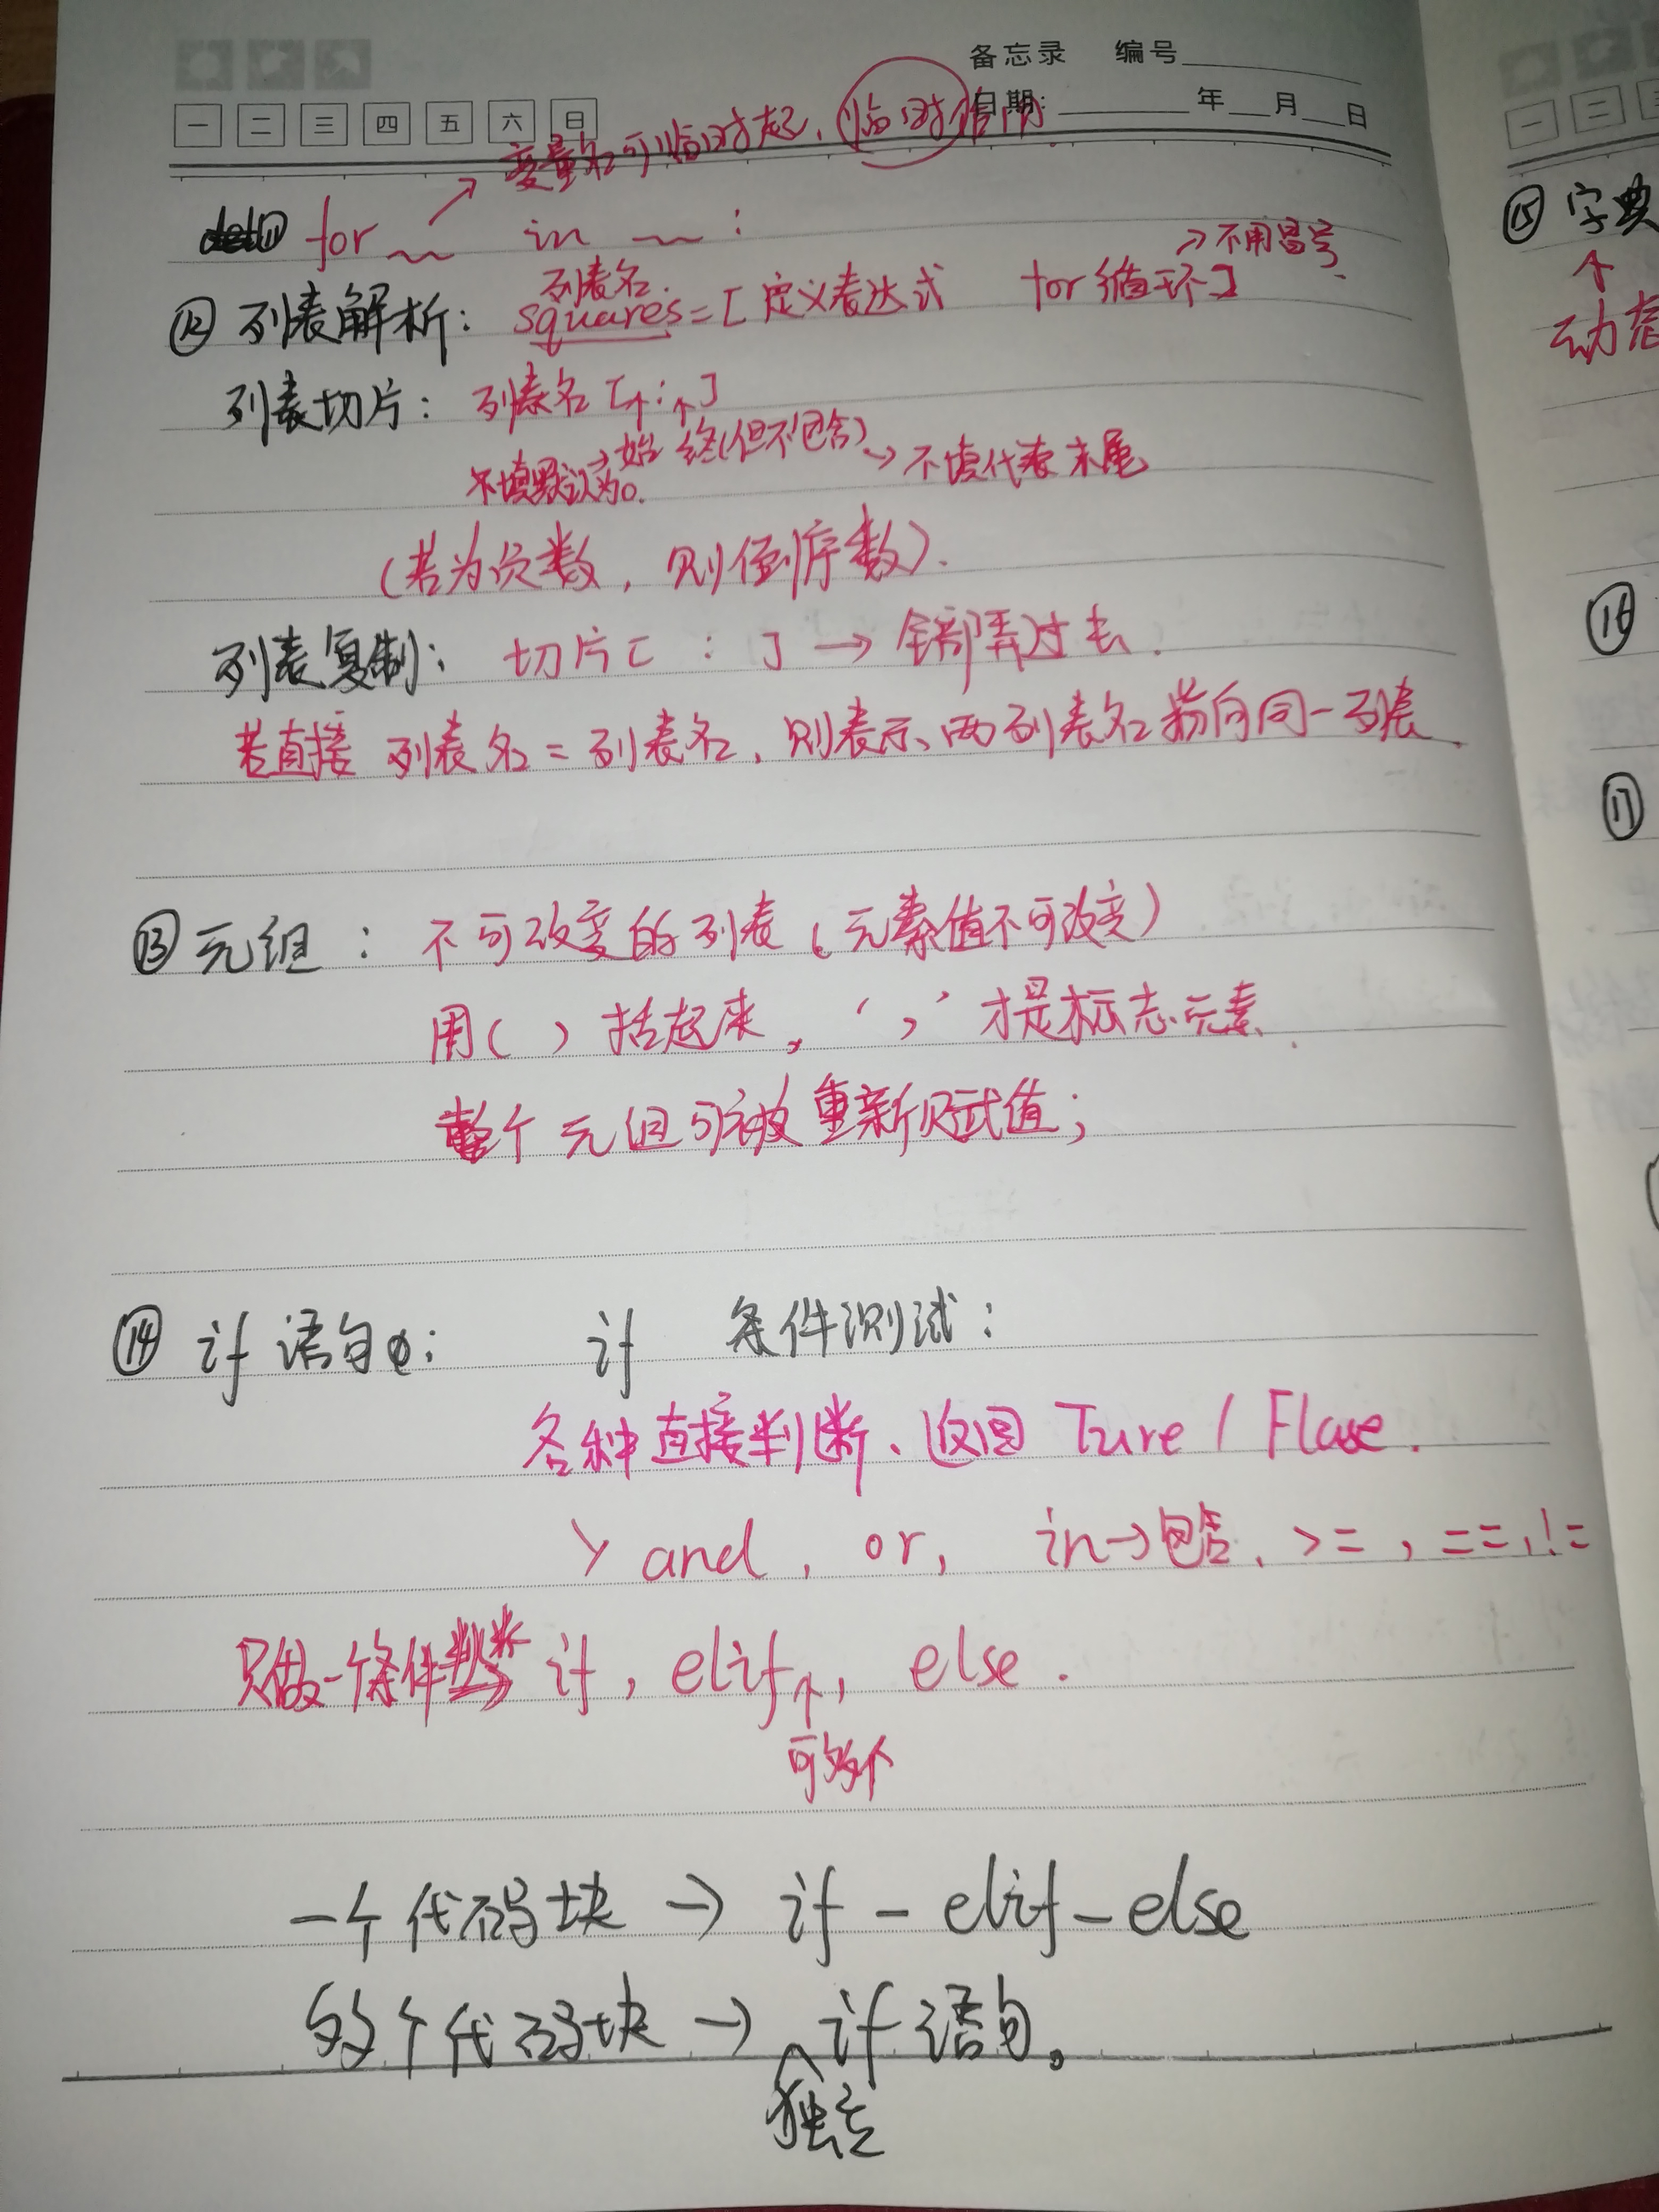 备忘录 编号
一 二 三 四 五 六 日 日期: 年 月 日
变量名可临时起,临时借用
for in :
→不用冒号
列表名
⑫ 列表解析: squares=[定义表达式 for循环]
列表切片: 列表名[↑:↑]
始 终(但不包含)→不填代表末尾
不填默认为0.
(若为负数,则倒序数).
列表复制: 切片[ : ] → 全部弄过去.
若直接 列表名=列表名,则表示两列表名指向同一列表.
⑬ 元组: 不可改变的列表(元素值不可改变)
用( )括起来, ‘,’才是标志元素.
整个元组可被重新赋值;
⑭ if 语句: if 条件测试:
各种直接判断、返回 Ture / Flase.
> and, or, in→包含, >=, ==, !=
只做一个条件 if, elif↑, else.
可多个
一个代码块 → if - elif - else
多个代码块 → if 语句。
独立
⑮ 字典
↑
动态
⑯
⑰